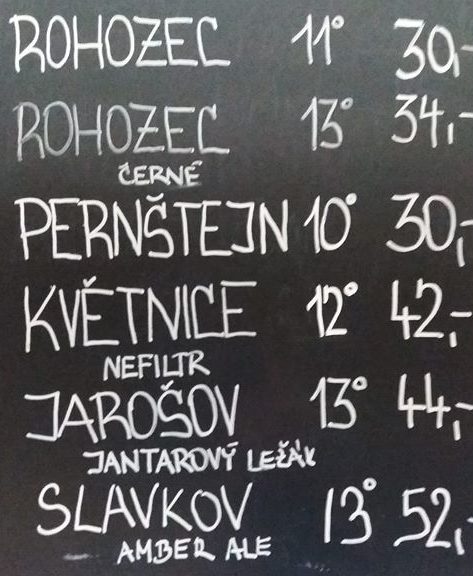 ROHOZEC 11° 30,-
ROHOZEC 13° 34,-
ČERNÉ
PERNŠTEJN 10° 30,-
KVĚTNICE 12° 42,-
NEFILTR
JAROŠOV 13° 44,-
JANTAROVÝ LEŽÁK
SLAVKOV 13° 52,-
AMBER ALE